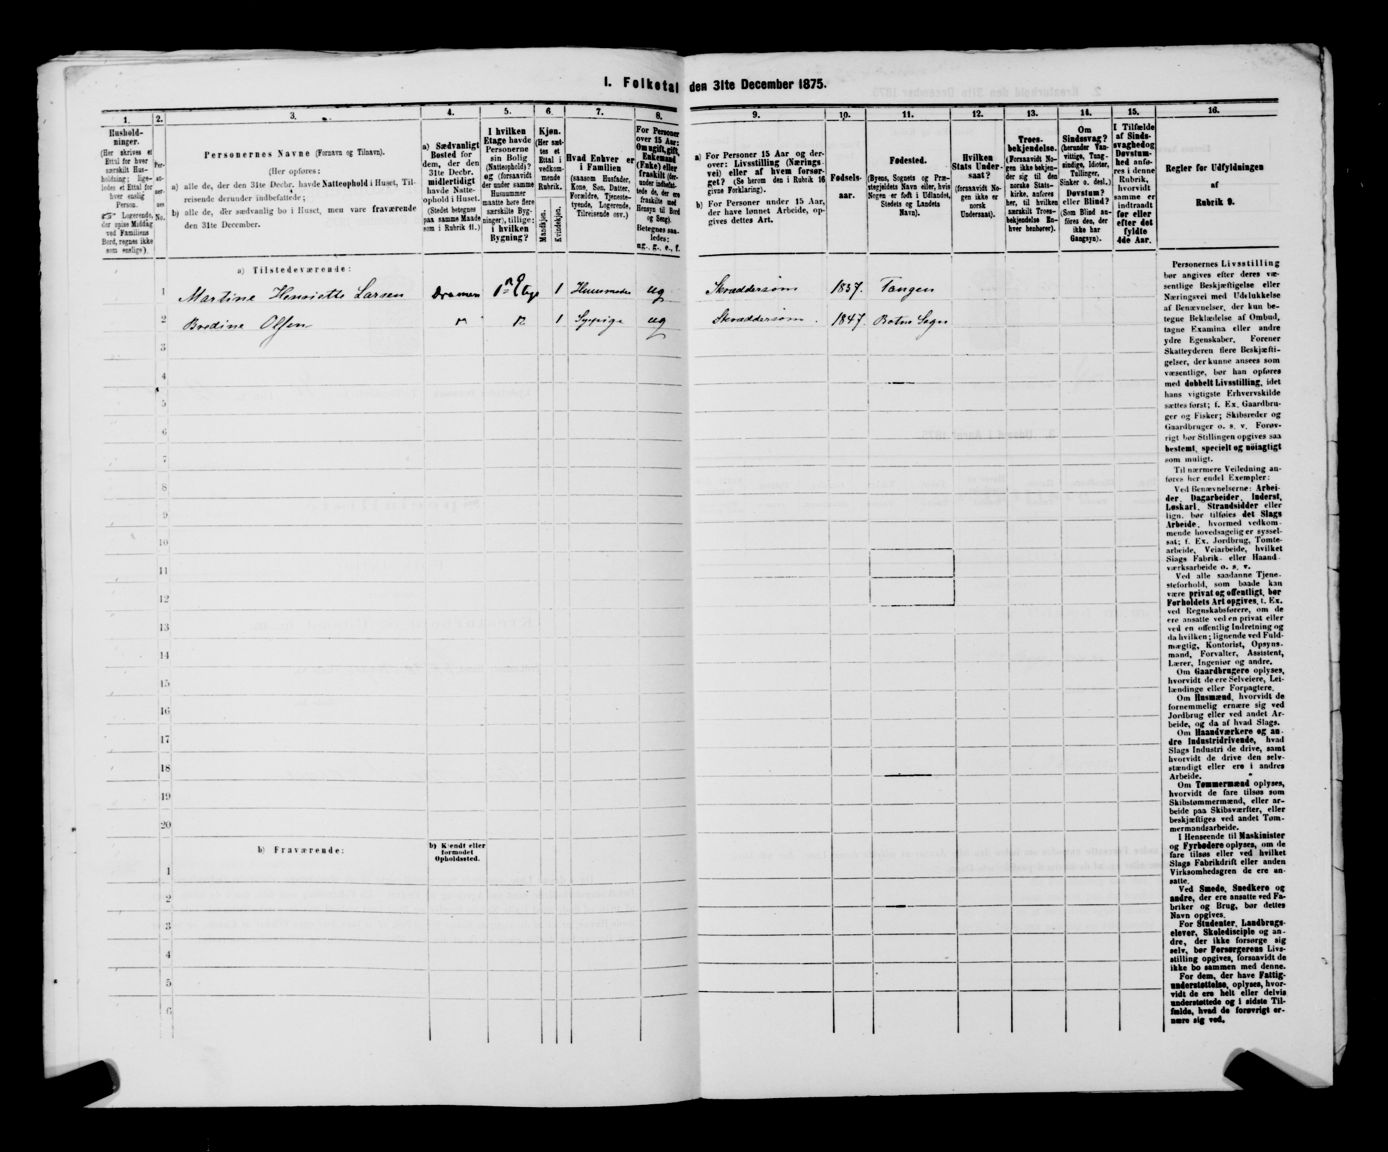 I. Folketal den 31te December 1875.
1.
2.
3.
4.
5.
6.
7.
8.
9.
10.
11.
12.
13.
14.
15.
16.
Hushold-
ninger.
(Her skrives et
Ettal for hver
særskilt Hus-
holdning; lige-
ledes et Ettal for
hver enslig
Person.
☞ Logerende,
der spise Middag
ved Familiens
Bord, regnes ikke
som enslige).
Per-
so-
ner-
nes
No.
Personernes Navne (Fornavn og Tilnavn).
(Her opføres:
a) alle de, der den 31te Decbr. havde Natteophold i Huset, Til-
reisende derunder indbefattede;
b) alle de, der sædvanlig bo i Huset, men vare fraværende
den 31te December.
a) Sædvanligt
Bosted for
dem, der den
31te Decbr.
midlertidigt
havde Natte-
ophold i Huset.
(Stedet betegnes
paa samme Maade
som i Rubrik 11.)
I hvilken
Etage havde
Personerne
sin Bolig
(Natteophold)?
og (forsaavidt
der under samme
Husnummer
maatte høre flere
særskilte Byg-
ninger), tillige:
i hvilken
Bygning?
Kjøn.
(Her sæt-
tes et
Ettal i
vedkom-
mende
Rubrik.
Mandkjøn.
Kvindekjøn.
Hvad Enhver er
i Familien
(saasom Husfader,
Kone, Søn, Datter,
Forældre, Tjeneste-
tyende, Logerende,
Tilreisende osv.)
For Personer
over 15 Aar:
Om ugift, gift,
Enkemand
(Enke) eller
fraskilt (der-
under indbefat-
tede de, der ere
fraskilte med
Hensyn til Bord
og Seng).
Betegnes saa-
ledes:
ug., g., e., f.
a) For Personer 15 Aar og der-
over: Livsstilling (Nærings-
vei) eller af hvem forsør-
get? (Se herom den i Rubrik 16
givne Forklaring).
b) For Personer under 15 Aar,
der have lønnet Arbeide, op-
gives dettes Art.
Fødsels-
aar.
Fødested.
(Byens, Sognets og Præ-
stegjeldets Navn eller, hvis
Nogen er født i Udlandet,
Stedets og Landets
Navn).
Hvilken
Stats Under-
saat?
(forsaavidt No-
gen ikke er
norsk
Undersaat).
Troes-
bekjendelse.
(Forsaavidt No-
gen ikke bekjen-
der sig til den
norske Stats-
kirke, anføres
her, til hvilken
særskilt Troes-
bekjendelse En-
hver henhører).
Om
Sindssvag?
(herunder Van-
vittige, Tung-
sindige, Idioter,
Tullinger,
Sinker o. desl.)
Døvstum?
eller Blind?
(Som Blind an-
føres den, der
ikke har
Gangsyn).
I Tilfælde
af Sinds-
svaghed og
Døvstum-
hed anfø-
res i denne
Rubrik,
hvorvidt
samme er
indtraadt
før eller
efter det
fyldte
4de Aar.
Regler for Udfyldningen
af
Rubrik 9.
a) Tilstedeværende:
1 Martine Henriette Larsen Dramen 1ste Etage 1 Huusmoder ug Skræddersøm 1837. Tangen
2 Bredine Olsen " " 1 Sypige ug Skræddersøm. 1847. Botne Sogn
3
4
5
6
7
8
9
10
11
12
13
14
15
16
17
18
19
20
b) Fraværende:
b) Kjendt eller
formodet
Opholdssted.
1
2
3
4
5
6
Personernes Livsstilling
bør angives efter deres væ-
sentlige Beskjæftigelse eller
Næringsvei med Udelukkelse
af Benævnelser, der kun be-
tegne Beklædelse af Ombud,
tagne Examina eller andre
ydre Egenskaber. Forener
Skatteyderen flere Beskjæfti-
gelser, der kunne ansees som
væsentlige, bør han opføres
med dobbelt Livsstilling, idet
hans vigtigste Erhvervskilde
sættes først; f. Ex. Gaardbru-
ger og Fisker; Skibsreder og
Gaardbruger o. s. v. Forøv-
rigt bør Stillingen opgives saa
bestemt, specielt og nøiagtigt
som muligt.
Til nærmere Veiledning an-
føres her endel Exempler:
Ved Benævnelserne: Arbei-
der, Dagarbeider, Inderst,
Løskarl, Strandsidder eller
lign. bør tilføies det Slags
Arbeide, hvormed vedkom-
mende hovedsagelig er syssel-
sat; f. Ex. Jordbrug, Tomte-
arbeide, Veiarbeide, hvilket
Slags Fabrik- eller Haand-
værksarbeide o. s. v.
Ved alle saadanne Tjene-
steforhold, som baade kan
være privat og offentligt, bør
Forholdets Art opgives, f. Ex.
ved Regnskabsførere, om de
ere ansatte ved en privat eller
ved en offentlig Indretning og
da hvilken; lignende ved Fuld-
mægtig, Kontorist, Opsyns-
mand, Forvalter, Assistent,
Lærer, Ingeniør og andre.
Om Gaardbrugere oplyses,
hvorvidt de ere Selveiere, Lei-
lændinge eller Forpagtere.
Om Husmænd, hvorvidt de
fornemmelig ernære sig ved
Jordbrug eller ved andet Ar-
beide, og da af hvad Slags.
Om Haandværkere og an-
dre Industridrivende, hvad
Slags Industri de drive, samt
hvorvidt de drive den selv-
stændigt eller ere i andres
Arbeide.
Om Tømmermænd oplyses,
hvorvidt de fare tilsøs som
Skibstømmermænd, eller ar-
beide paa Skibsværfter, eller
beskjæftiges ved andet Tøm-
mermandsarbeide.
I Henseende til Maskinister
og Fyrbødere oplyses, om de
fare tilsøs eller ved hvilket
Slags Fabrikdrift eller anden
Virksomhedsgren de ere an-
satte.
Ved Smede, Snedkere og
andre, der ere ansatte ved Fa-
briker og Brug, bør dettes
Navn opgives.
For Studenter, Landbrugs-
elever, Skoledisciple og an-
dre, der ikke forsørge sig
selv, bør Forsørgerens Livs-
stilling opgives, forsaavidt de
ikke bo sammen med denne.
For dem, der have Fattig-
understøttelse, oplyses, hvor-
vidt de ere helt eller delvis
understøttede og i sidste Til-
fælde, hvad de forøvrigt er-
nære sig ved.